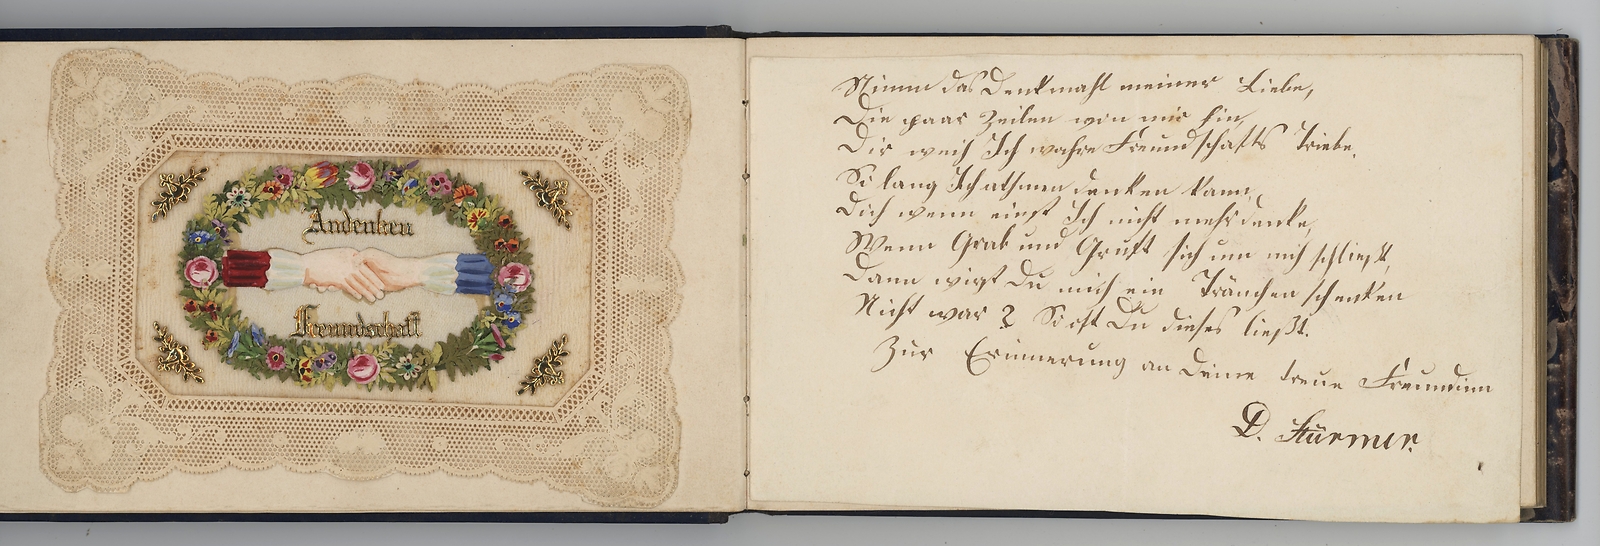 Andenken
Freundschaft
Nimm das Denkmahl meiner Liebe,
Die paar Zeilen von mir hin,
Dir weih Ich wahre Freundschafts Triebe,
So lang Ich athmen denken kann,
Dich wenn einst Ich nicht mehr denke,
Wenn Grab und Gruft sich um mich schließt,
Dann wirst Du mich ein Tränchen schenken
Nicht war? So oft Du dieses ließt.
Zur Erinnerung an Deine treue Freundinn
D. Stürmer.